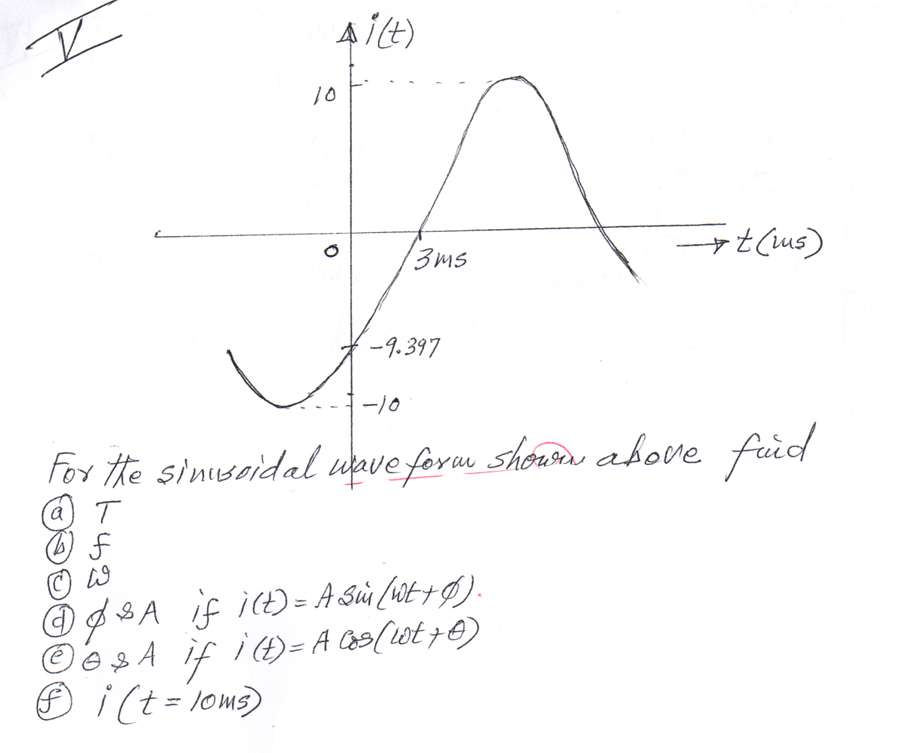 V
i(t)
10
0
3ms
t(ms)
-9.397
-10
For the sinusoidal waveform shown above find
(a) T
(b) f
(c) ω
(d) φ & A if i(t) = A sin(ωt + φ).
(e) θ & A if i(t) = A cos(ωt + θ)
(f) i(t = 10ms)